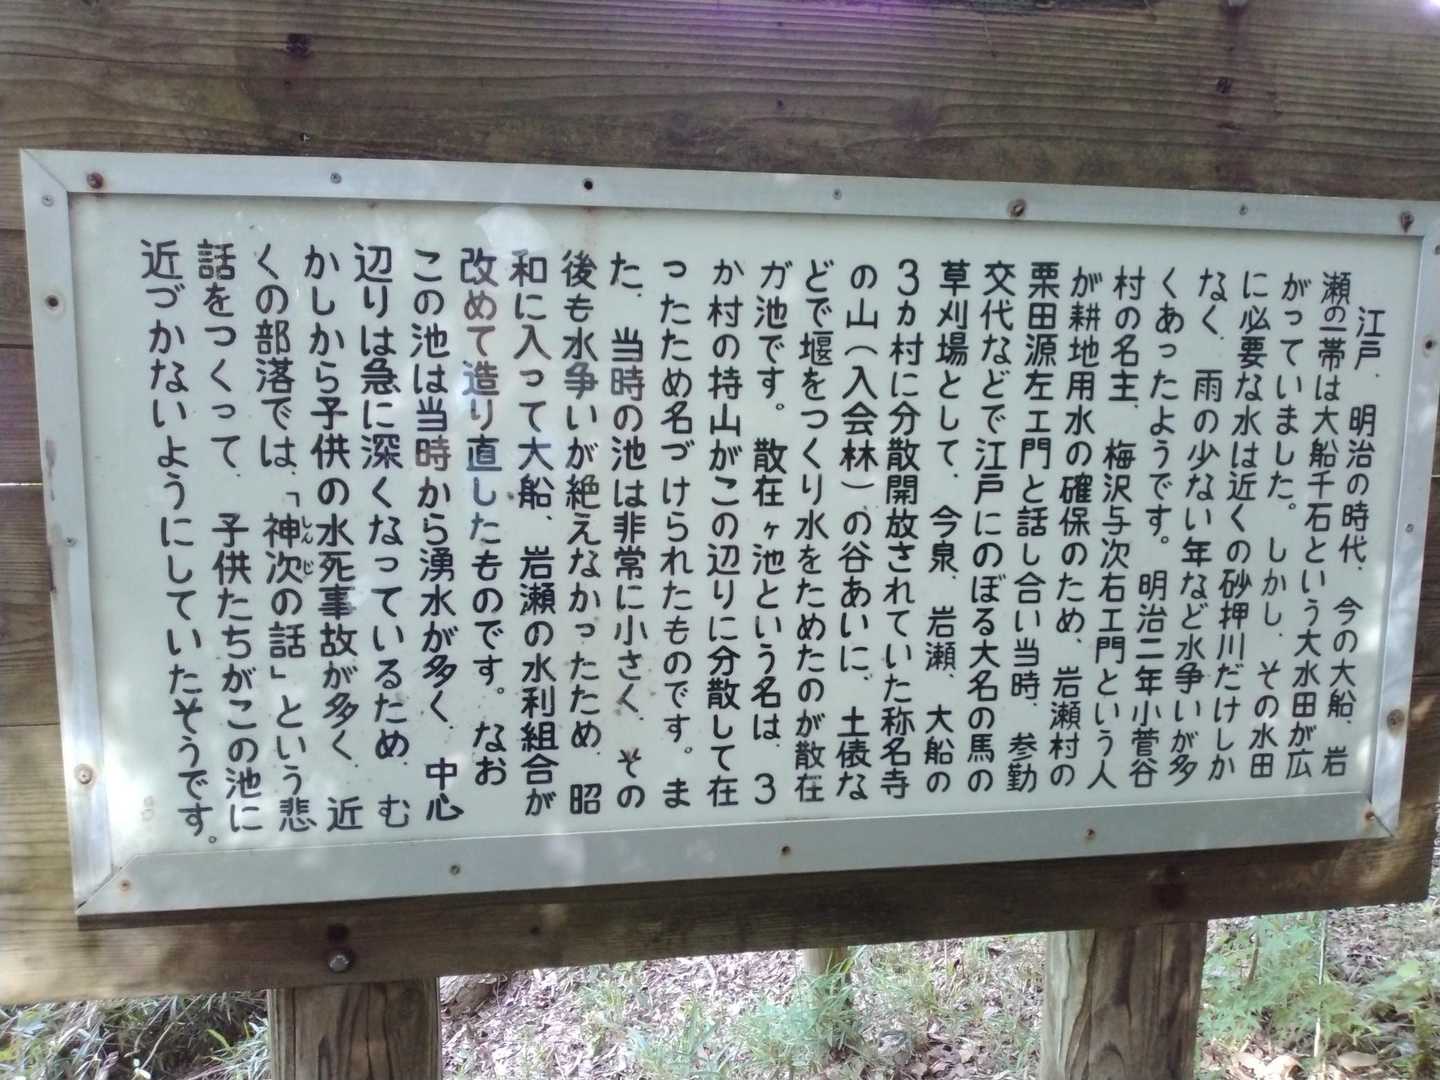 江戸、明治の時代、今の大船、岩
瀬の一帯は大船千石という大水田が広
がっていました。しかし、その水田
に必要な水は近くの砂押川だけしか
なく、雨の少ない年など水争いが多
くあったようです。明治二年小菅谷
村の名主、梅沢与次右エ門という人
が耕地用水の確保のため、岩瀬村の
栗田源左エ門と話し合い当時、参勤
交代などで江戸にのぼる大名の馬の
草刈場として、今泉、岩瀬、大船の
3ヵ村に分散開放されていた称名寺
の山(入会林)の谷あいに、土俵な
どで堰をつくり水をためたのが散在
ガ池です。散在ヶ池という名は、3
か村の持山がこの辺りに分散して在
ったため名づけられたものです。ま
た、当時の池は非常に小さく、その
後も水争いが絶えなかったため、昭
和に入って大船、岩瀬の水利組合が
改めて造り直したものです。なお
この池は当時から湧水が多く、中心
辺りは急に深くなっているため、む
かしから子供の水死事故が多く、近
くの部落では、「神次の話」という悲
しんじ
話をつくって、子供たちがこの池に
近づかないようにしていたそうです。